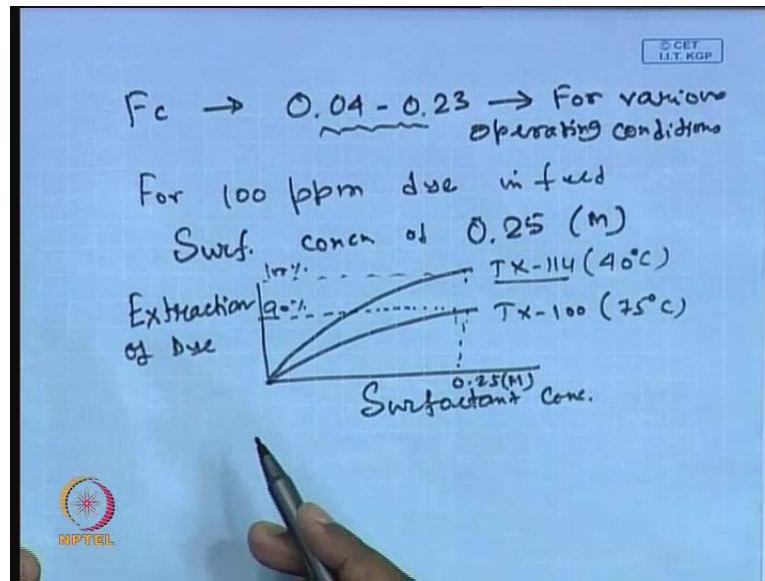 © CET
I.I.T. KGP
Fc → 0.04 - 0.23 → For various
operating conditions
For 100 ppm dye in feed
Surf. concn of 0.25 (M)
100%
TX-114 (40°C)
Extraction
of Dye
90%
TX-100 (75°C)
0.25(M)
Surfactant Conc.
NPTEL